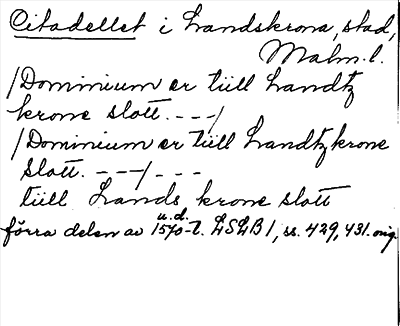 Citadellet i Landskrona, stad,
Malm. l.
/Dominium er tüll Landtz
krone slott. ---/
/Dominium er tüll Landtzkrone
slott. ---/---
tüll Lands krone slott
u.d.
förra delen av 1570-t. LSLB 1, ss. 429, 431. orig.